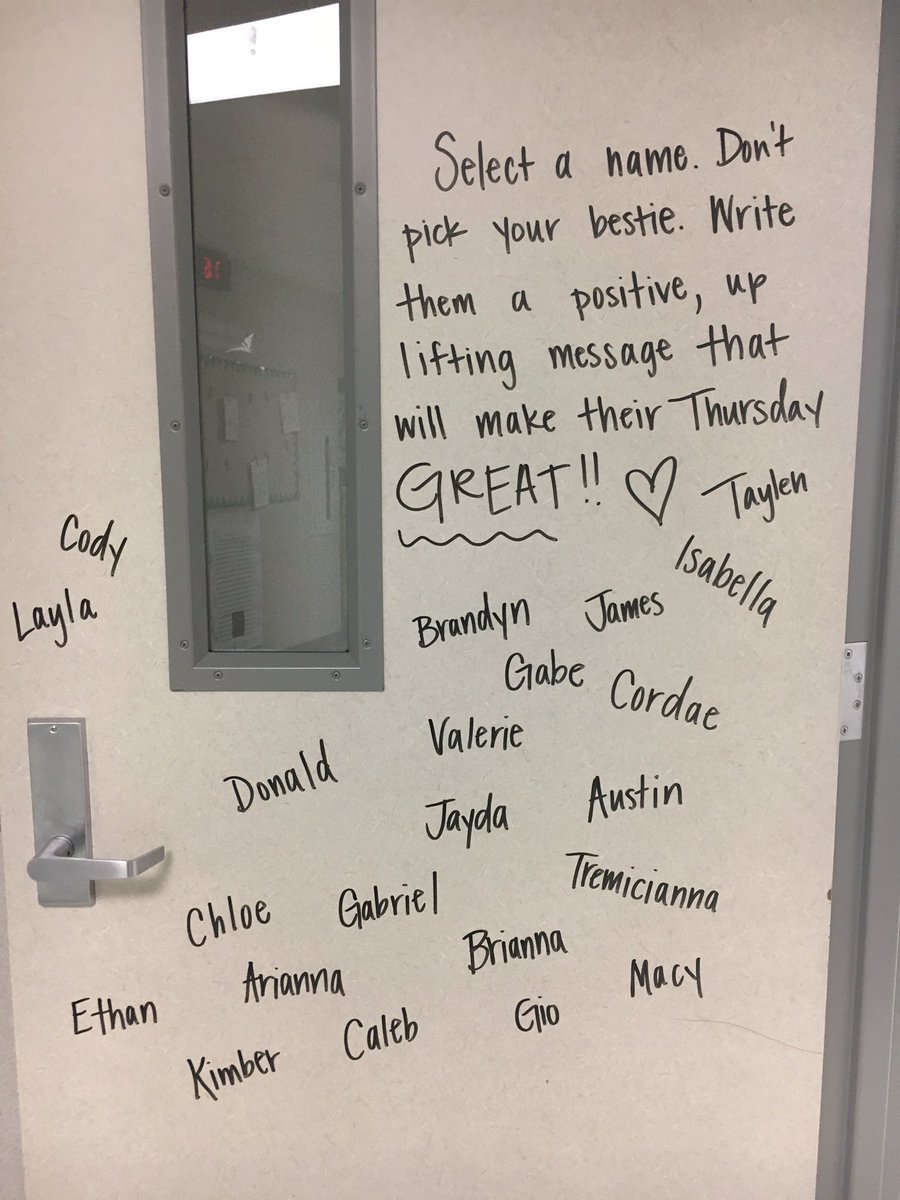 Select a name. Don't
pick your bestie. Write
them a positive, up
lifting message that
will make their Thursday
GREAT!! ♡
Taylen
Isabella
Cody
Layla
Brandyn
James
Gabe
Cordae
Valerie
Donald
Jayda
Austin
Tremicianna
Chloe
Gabriel
Brianna
Arianna
Macy
Ethan
Caleb
Gio
Kimber